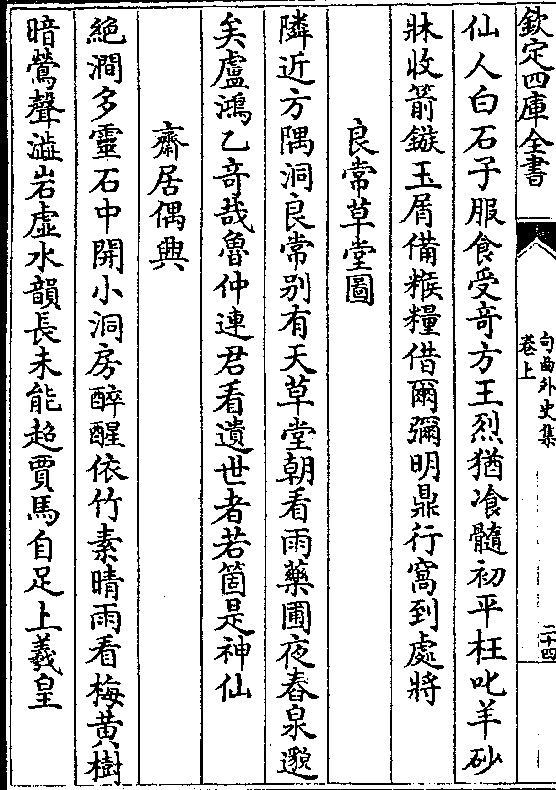 欽定四庫全書
句曲外史集
卷上
二十四
仙人白石子服食受竒方王烈猶飡髓初平枉叱羊砂
牀收箭鏃玉屑備糇糧借爾彌明鼎行窩到處將
良常草堂圖
隣近方隅洞良常别有天草堂朝看雨藥圃夜舂泉邈
矣盧鴻乙竒哉魯仲連君看遺世者若箇是神仙
齋居偶興
絶澗多靈石中開小洞房醉醒依竹素晴雨看梅黄樹
暗鶯聲澁岩虚水韻長未能超賈馬自足上羲皇